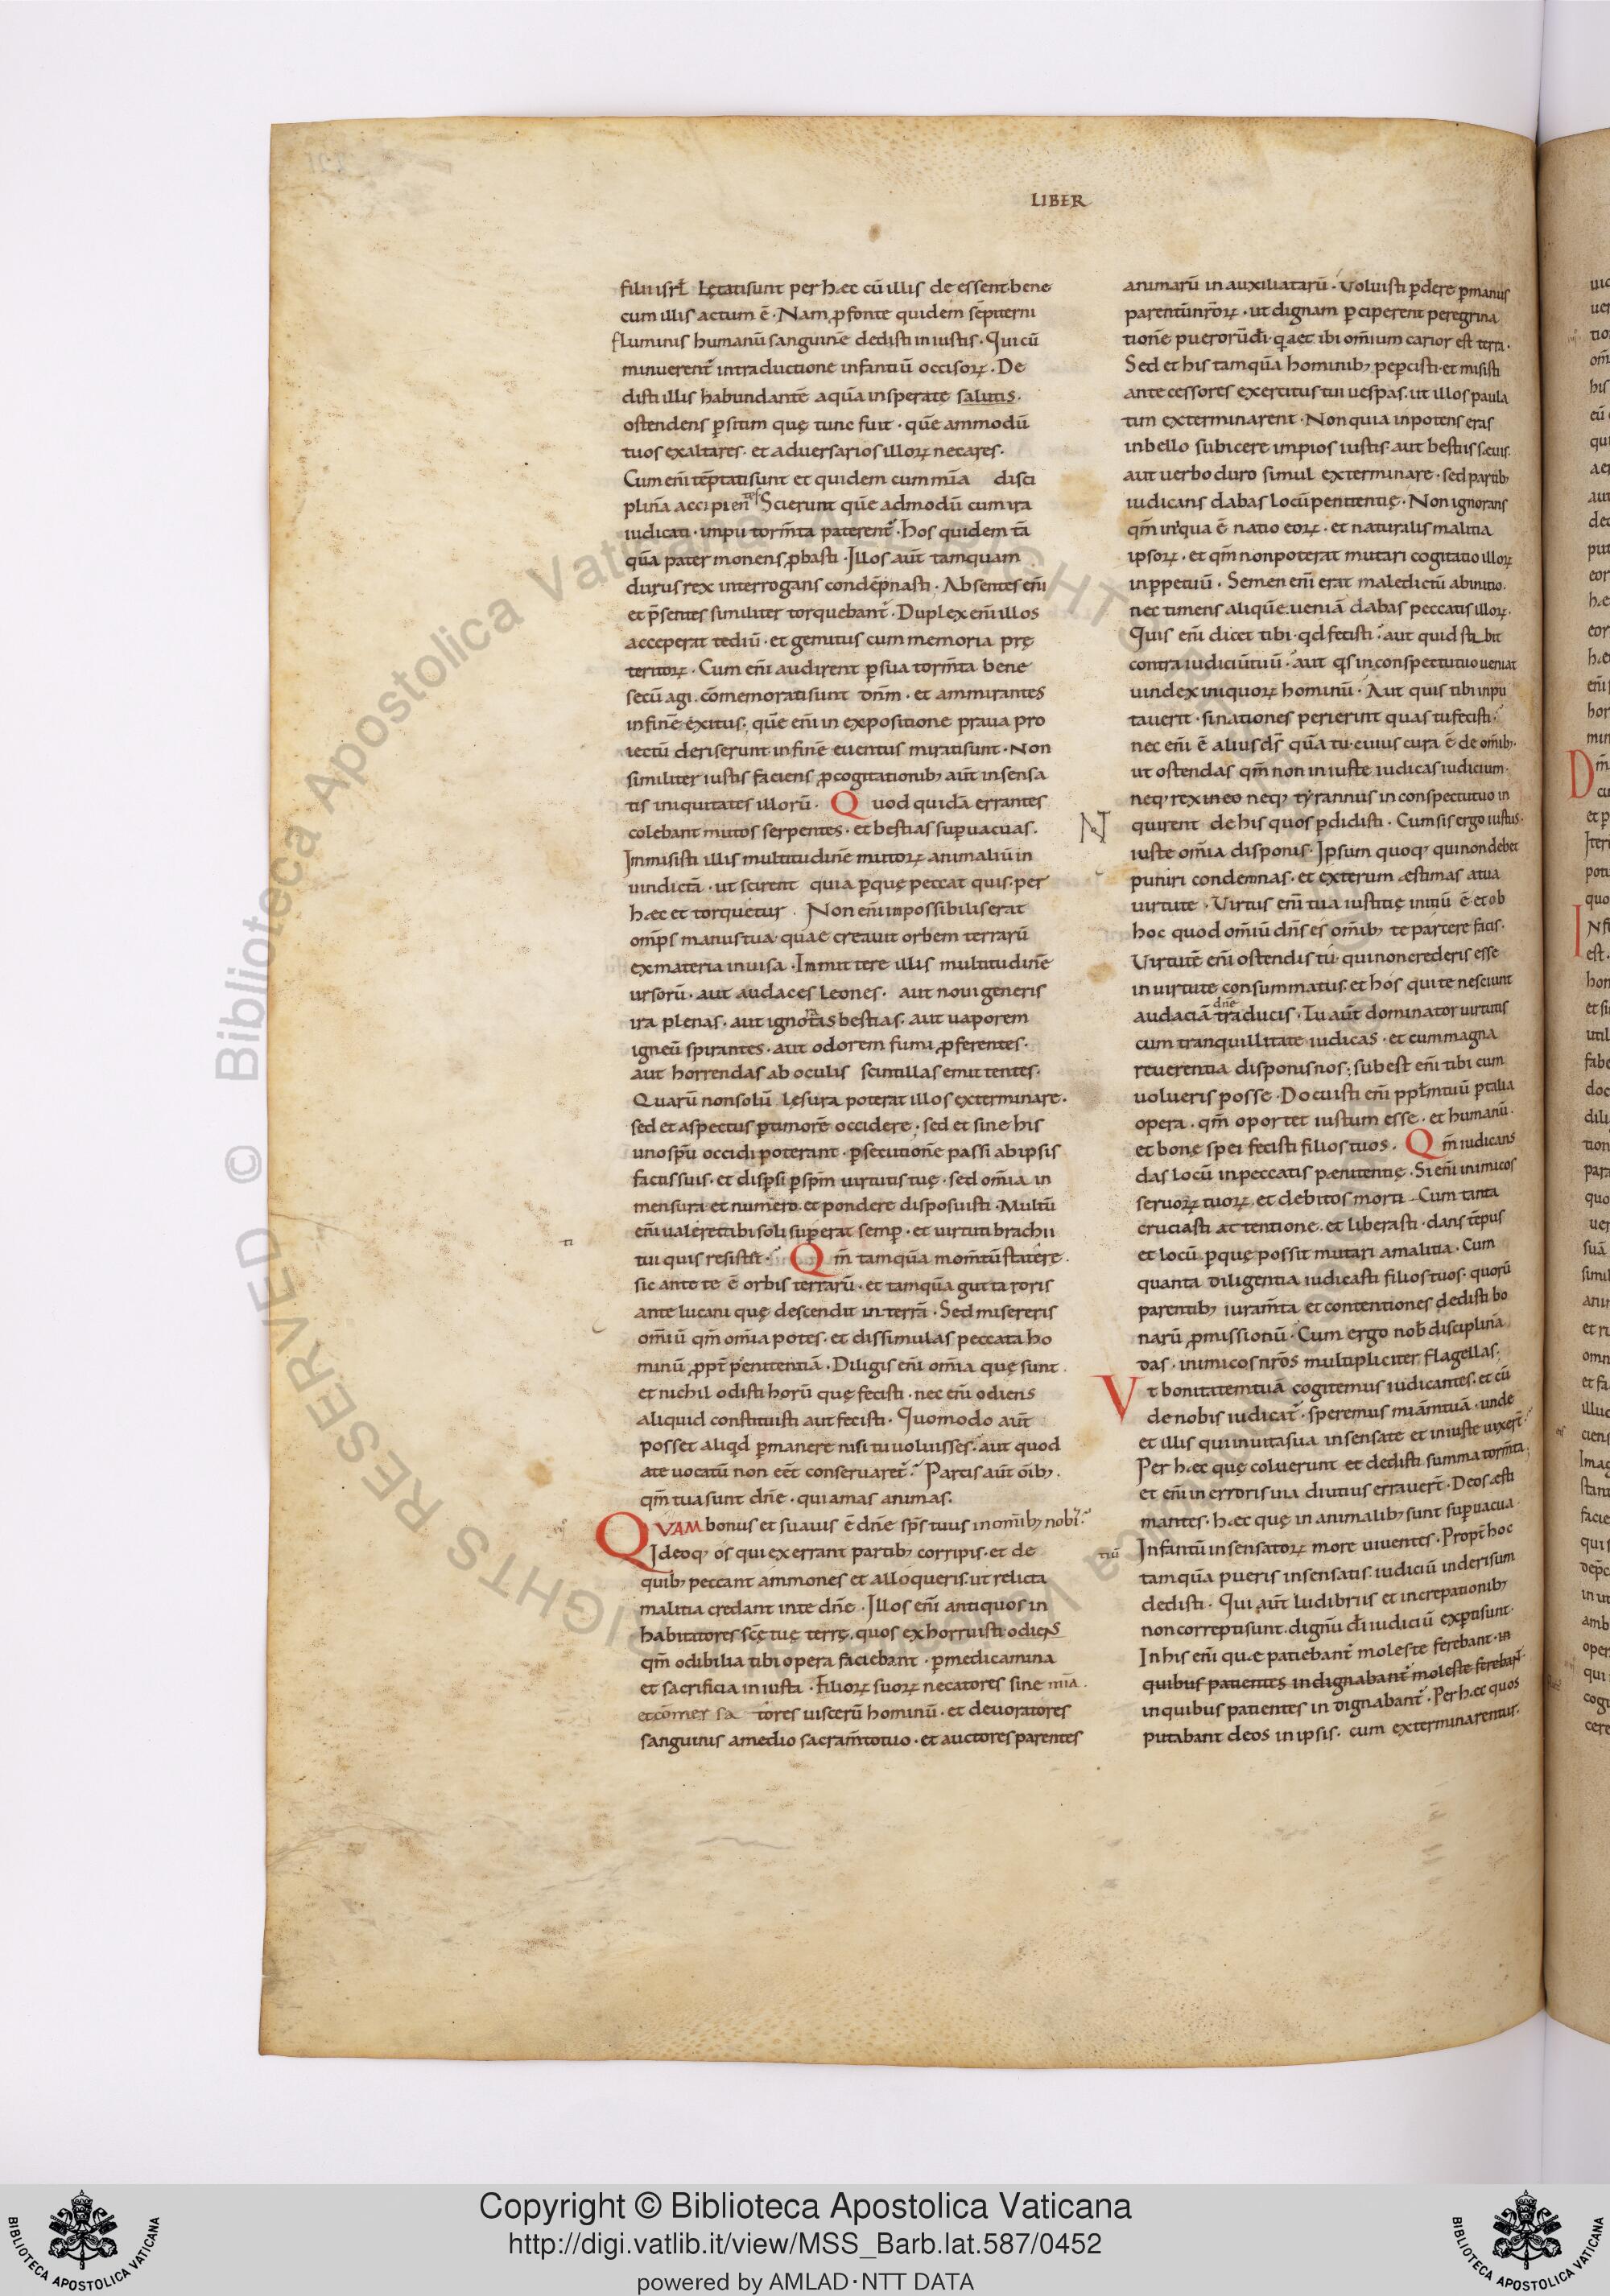 LIBER
filii isrł Lętati sunt per hæc cū illis de essent bene
cum illis actum ē · Nam p fonte quidem sēpiterni
fluminis humanū sanguinē dedisti iniustis · Qui cū
minuerent̄ in traductione infantiū occisoꝝ · De
disti illis habundantē aquā insperatę salutis ·
ostendens p sitim quę tunc fuit · quē ammodū
tuos exaltares · et adversarios illoꝝ necares ·
Cum eni tēptati sunt et quidem cum mīa disci
plinā accipientes Scierunt quē admodū cum ira
iudicati · impii torm̄ta paterent̄ · hos quidem tā
quā pater monens pbasti · Illos aut̄ tamquam
durus rex interrogans condēpnasti · Absentes eni
et p̄sentes similiter torquebant̄ · Duplex eni illos
acceperat tediū · et gemitus cum memoria prę
teritoꝝ · Cum eni audirent p sua torm̄ta bene
secū agi · cōmemorati sunt dn̄m · et ammirantes
in finē exitus · quē eni in expositione praua pro
iectū deriserunt in finē euentus mirati sunt · Non
similiter iustis faciens p cogitationib; aut̄ insensa
tis iniquitates illorū · Quod quidā errantes
colebant mutos serpentes · et bestias supuacuas ·
Immisisti illis multitudinē mutoꝝ animaliū in
uindictā · ut scirent quia p quę peccat quis · per
hæc et torquetur · Non eni inpossibilis erat
omps manus tua · quae creauit orbem terrarū
ex materia inuisa · Inmittere illis multitudinē
ursorū · aut audaces leones · aut noui generis
ira plenas · aut ignotas bestias · aut uaporem
igneū spirantes · aut odorem fumi pferentes ·
aut horrendas ab oculis scintillas emittentes ·
Quarū non solū lęsura poterat illos exterminare ·
sed et aspectus p timorē occidere · sed et sine his
uno spū occidi poterant · psecutionē passi ab ipsis
factis suis · et dispsi p spm̄ uirtutis tuę · sed om̄ia in
mensura et numero et pondere disposuisti · Multū
eni ualere tibi soli supererat semp · et uirtuti brachii
tui quis resistit · Qm̄ tamquā mom̄tū staterę ·
sic ante te ē orbis terrarū · et tamquā gutta roris
ante lucani quę descendit in terrā · Sed misereris
om̄iū qm̄ om̄ia potes · et dissimulas peccata ho
minū ppt̄ penitentiā · Diligis eni om̄ia quę sunt
et nichil odisti horū quę fecisti · nec eni odiens
aliquid constituisti aut fecisti · Quomodo aut̄
posset aliqd pmanere nisi tu uoluisses · aut quod
a te uocatū non eēt conseruaret̄ · Parcis aut̄ oīb; ·
qm̄ tua sunt dn̄e · qui amas animas ·
QUAM bonus et suauis ē dn̄e sps̄ tuus in omīb; nobī ·
Ideoq; os qui exerrant partib; corripis · et de
quib; peccant ammones et alloqueris · ut relicta
malitia credant in te dn̄e · Illos eni antiquos in
habitatores scę tuę terrę · quos exhorruisti odiens
qm̄ odibilia tibi opera faciebant · p medicamina
et sacrificia iniusti · Filioꝝ suoꝝ necatores sine mīa ·
et cōmes sa tores uiscerū hominū · et deuoratores
sanguinis a medio sacram̄to tuo · et auctores parentes
animarū inauxiliatarū · Voluisti pdere p manus
parentū nr̄oꝝ · ut dignam pciperent peregrina
tionē puerorū dī · q aec ibi om̄ium carior est terra ·
Sed et his tamquā hominib; pepcisti · et misisti
ante cessores exercitus tui uespas · ut illos paula
tim exterminarent · Non quia inpotens eras
in bello subicere impios iustis · aut bestiis sæuis ·
aut uerbo duro simul exterminare · sed partib;
iudicans dabas locū penitentię · Non ignorans
qm̄ inqua ē natio eoꝝ · et naturalis malitia
ipsoꝝ · et qm̄ non poterat mutari cogitatio illoꝝ
in ppetuū · Semen eni erat maledictū ab initio ·
nec timens aliquē ueniā dabas peccatis illoꝝ ·
Quis eni dicet tibi · qd fecisti · aut quid sta bit
contra iudiciū tuū · aut qs in conspectu tuo ueniat
uindex iniquoꝝ hominū · Aut quis tibi inpu
tauerit · si nationes perierint quas tu fecisti ·
nec eni ē alius ds̄ quā tu · cuius cura ē de om̄ib; ·
ut ostendas qm̄ non iniuste iudicas iudicium ·
neq; rex in eo neq; tyrannus in conspectu tuo in
quirent de his quos pdidisti · Cum sis ergo iustus ·
iuste om̄ia disponis · Ipsum quoq; qui non debet
puniri condemnas · et exterum æstimas a tua
uirtute · Virtus eni tua iustitię initiū ē et ob
hoc quod om̄iū dn̄s es om̄ib; te parcere facis ·
Virtutē eni ostendis tu · qui non crederis esse
in uirtute consummatus · et hos qui te nesciunt
dn̄e
audaciā traducis · Tu aut̄ dominator uirtutis
cum tranquillitate iudicas · et cum magna
reuerentia disponis nos · subest eni tibi cum
uolueris posse · Docuisti eni ppłm tuū p talia
opera · qm̄ oportet iustum esse · et humanū ·
et bonę spei fecisti filios tuos · Qm̄ iudicans
das locū in peccatis pænitentię · Si eni inimicos
seruoꝝ tuoꝝ · et debitos morti · Cum tanta
cruciasti attentione · et liberasti · dans tēpus
et locū p quę possit mutari a malitia · Cum
quanta diligentia iudicasti filios tuos · quorū
parentib; iuram̄ta et contentiones dedisti bo
narū pmissionū · Cum ergo nob̄ disciplinā
das · inimicos nr̄os multipliciter flagellas ·
Vt bonitatem tuā cogitemus iudicantes · et cū
de nobis iudicat̄ · speremus miām tuā · unde
et illis qui in uita sua insensate et iniuste uixert̄ ·
Per hæc quę coluerunt et dedisti summa torm̄ta ·
et eni in erroris uia diutius errauert̄ · Deos æsti
mantes · hæc quę in animalib; sunt supuacua
Infantū insensatoꝝ more uiuentes · Propt̄ hoc
tiū
tamquā pueris insensatis iudiciū in derisum
dedisti · Qui aut̄ ludibriis et increpationib;
non correpti sunt · dignū dī iudiciū expti sunt ·
In his eni quæ patiebant̄ moleste ferebant · in
quibus patientes indignabant̄ moleste ferebant̄
in quibus patientes indignabant̄ · Per hæc quos
putabant deos in ipsis · cum exterminarentur ·
Copyright © Biblioteca Apostolica Vaticana
http://digi.vatlib.it/view/MSS_Barb.lat.587/0452
powered by AMLAD·NTT DATA